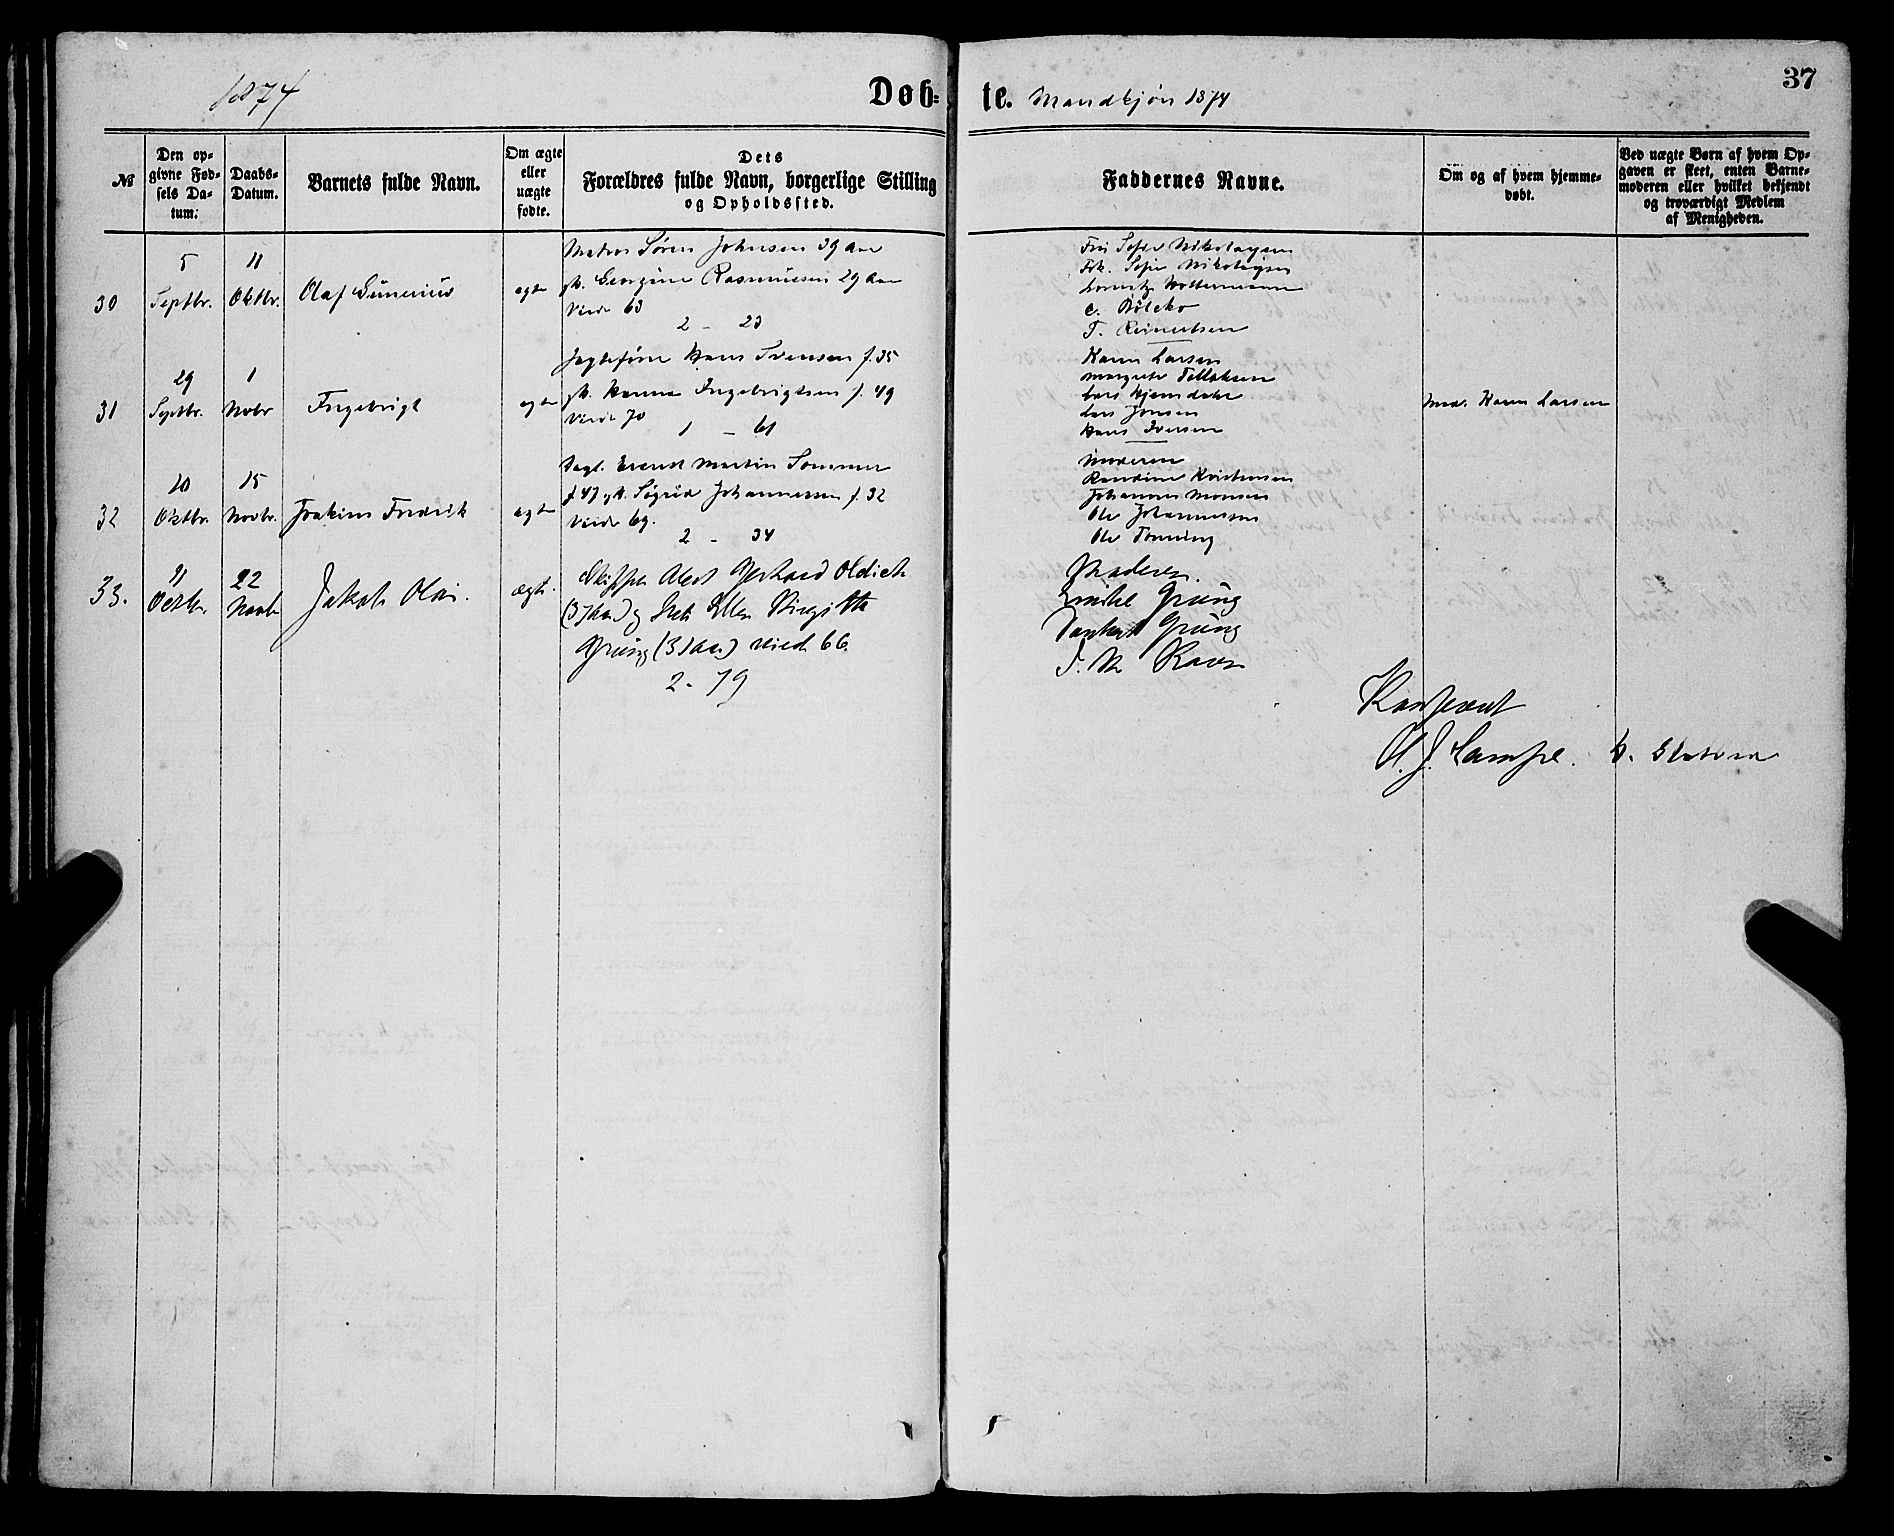 1874
Døb=
te. Mandkjøn 1874
37
№
Den op=
givne Fød=
sels Da=
tum.
Daabs=
Datum.
Barnets fulde Navn.
Om ægte
eller
uægte
fødte.
Dets
Forældres fulde Navn, borgerlige Stilling
og Opholdssted.
Faddernes Navne.
Om og af hvem hjemme=
døbt.
Ved uægte Børn af hvem Op=
gaven er skeet, enten Barne=
moderen eller hvilket bekjendt
og troværdigt Medlem
af Menigheden.
30
5
Septbr.
11
Oktbr.
Olaf Gunerius
egte
Matros Søren Johnsen 39 Aar
Georgine Rasmussen 29 Aar
Viede 63
2 - 23
Sofie Nikolaysen
Frk. Sofie Nikolaysen
Lorentz Woltermann
C. Bølcko
T. Reinertsen
31
29
Septbr.
1
Novbr
Ingebrigt
egte
Jagtefører Hans Ivensen f. 35
Hanna Ingebrigtsen f. 49
Viede 70
1 - 61
Karen Larsen
Margrete Tellefsen
Lars Hjemdahl
Lars Jonsen
Hans Iversen
Mad. Karen Larsen
32
10
Oktbr.
15
Novbr.
Joakim Fredrik
egte
Dagl. Evenst Martin Sommer
f. 47 gk. Sigrid Johannessen f. 32
Viede 69.
2 - 34
Moderen
Randine Kristensen
Johannes Monsen
Ole Johannessen
Ole Tonning
33.
11
Octbr.
22
Novbr
Jakob Olai.
ægte.
Skipper Albert Gerhard Oldick
(37 Aar) og Ellen Birgitte
Grung (31 aar) vied 66.
2 - 79
Moderen.
Emilie Grung
Dankert Grung
Ravn
Konfereret
O. J. Lampe. b. Slatom